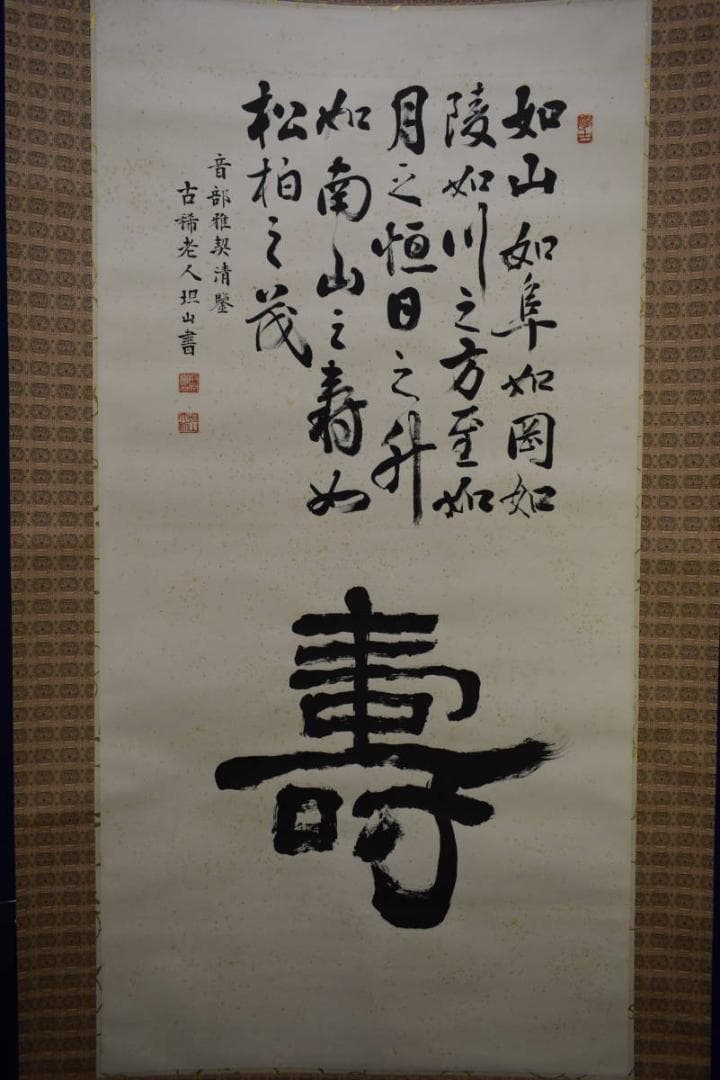 如山如阜如岡如
陵如川之方至如
月之恒日之升
如南山之壽如
松柏之茂
音部雅契清鑒
古稀老人坦山書
壽